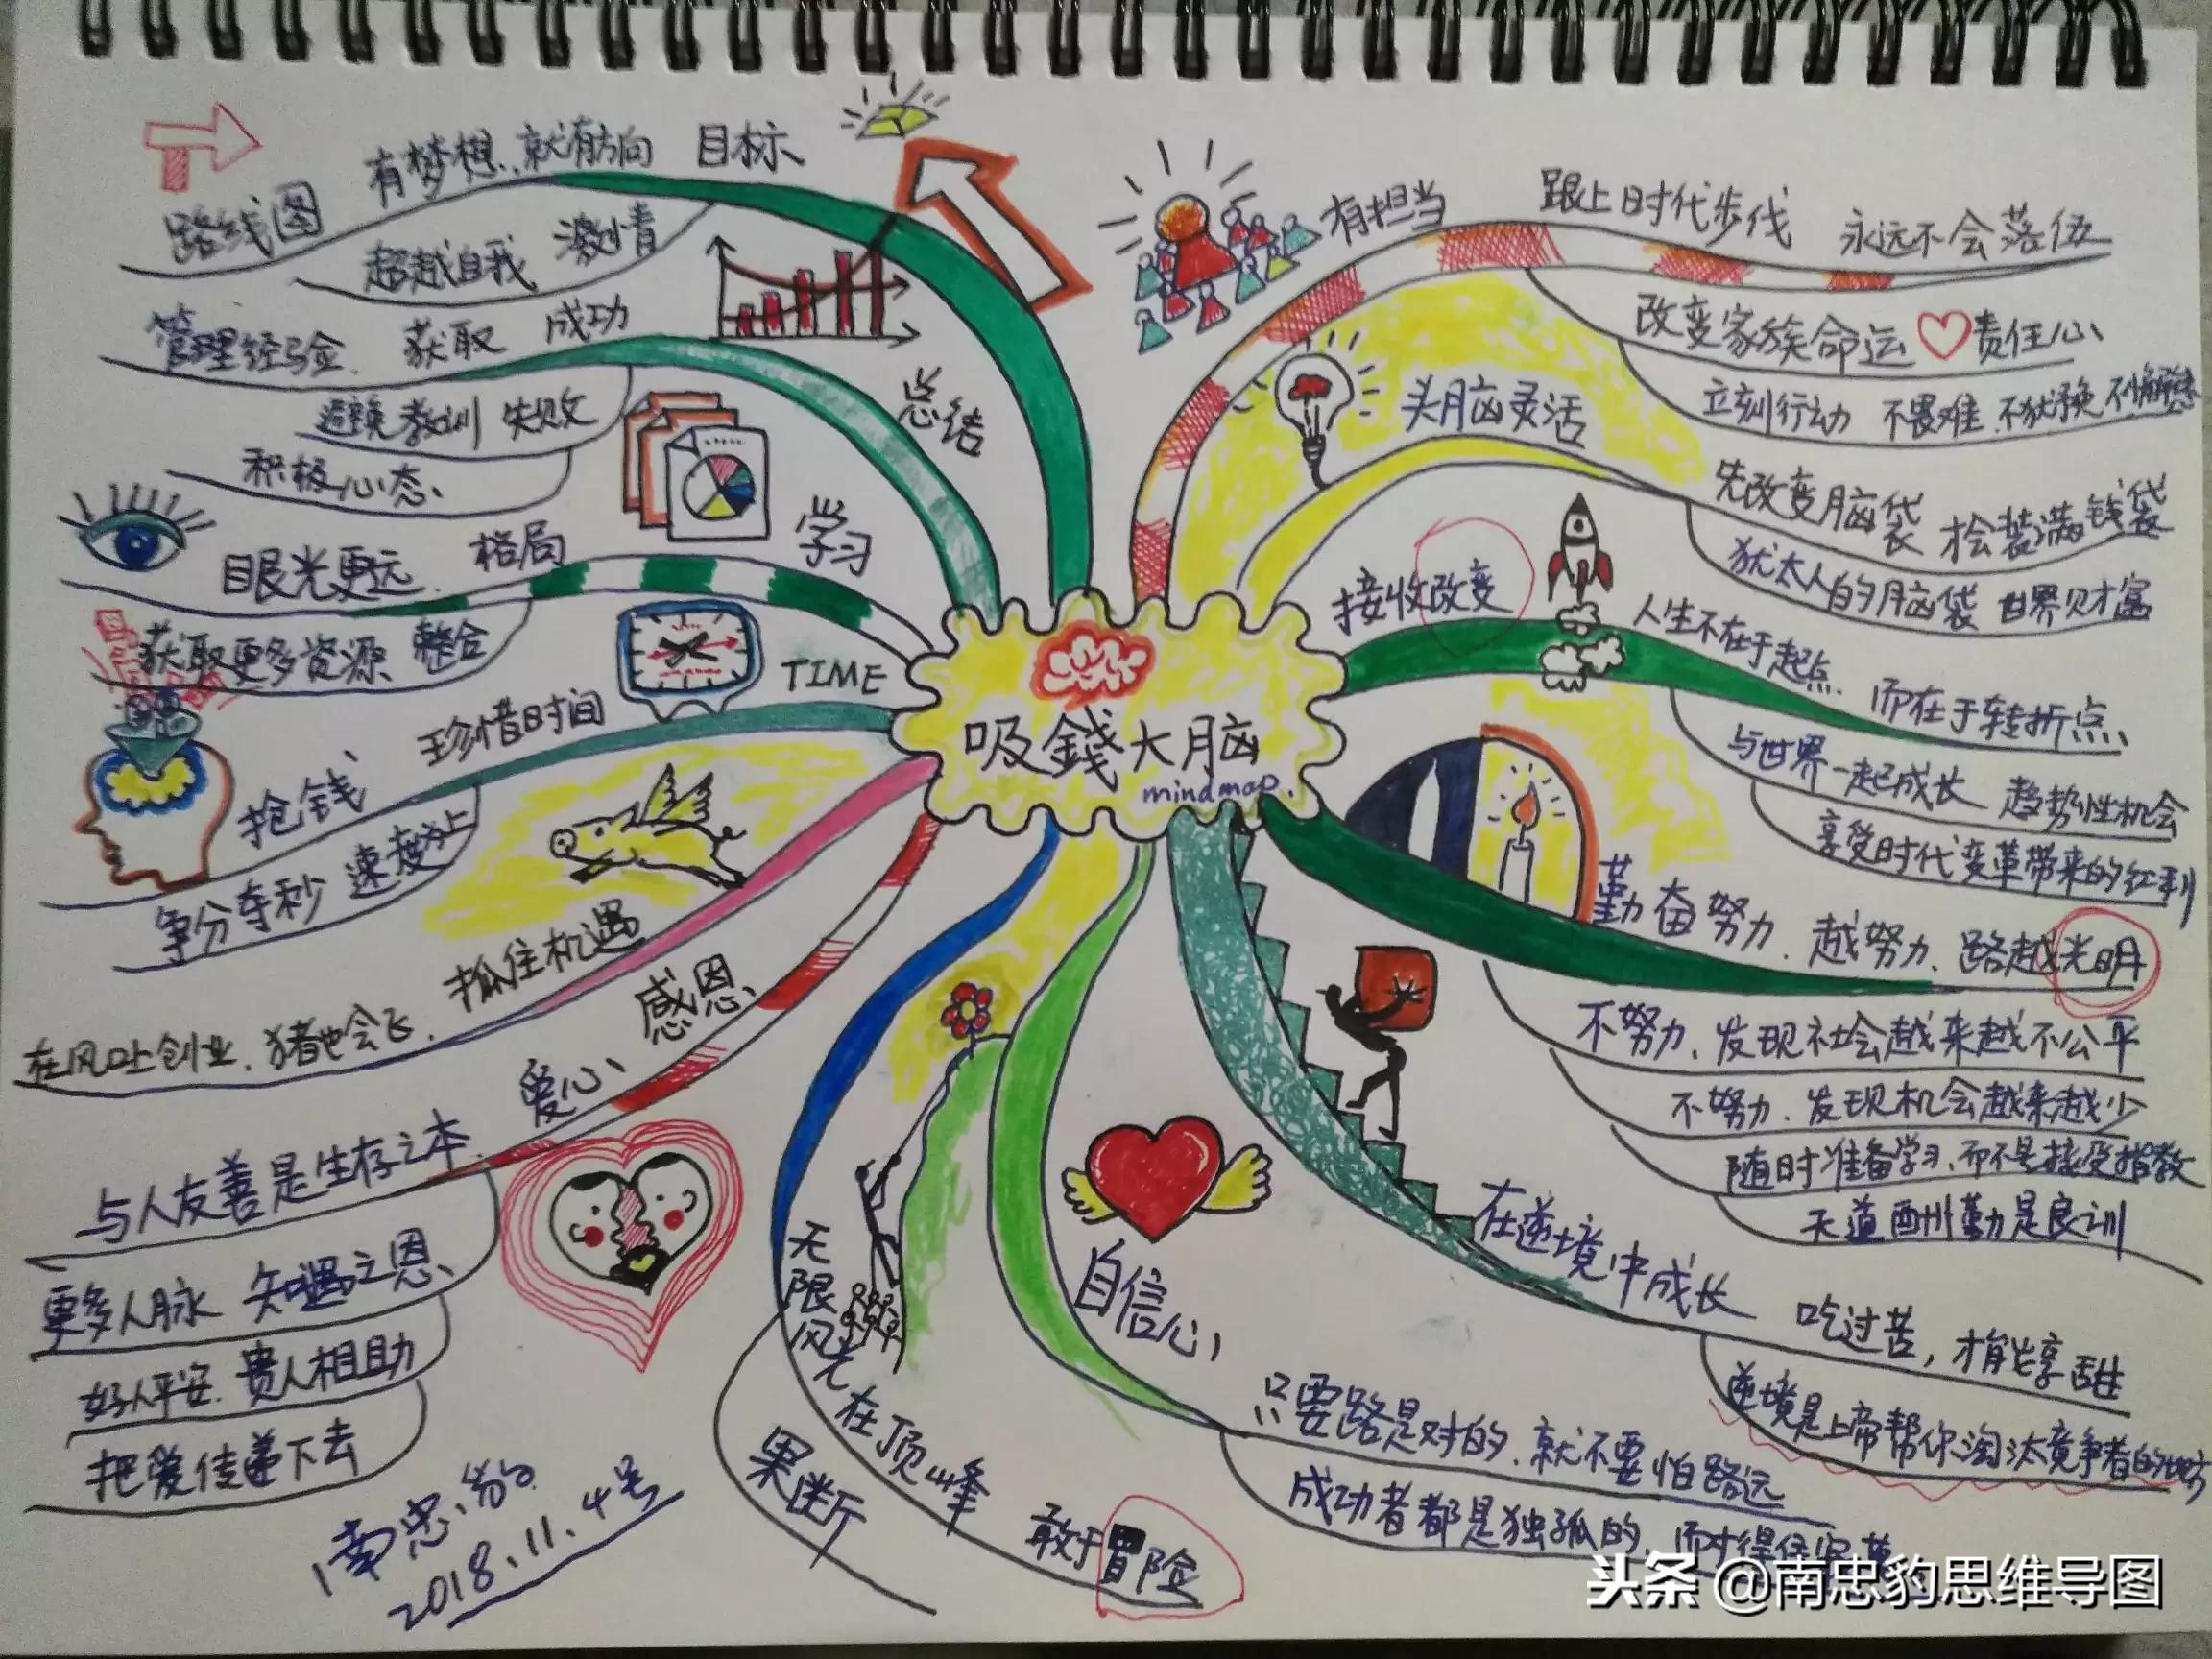 吸錢大脑
mindmap.
有担当
跟上时代步伐
永远不会落伍
改变家族命运
责任心
立刻行动 不畏难 不犹豫
头脑灵活
先改变脑袋 才会装满钱袋
犹太人的脑袋 世界财富
接收改变
人生不在于起点 而在于转折点
与世界一起成长 趋势性机会
享受时代变革带来的红利
勤奋努力
越努力、路越光明
不努力、发现社会越来越不公平
不努力、发现机会越来越少
随时准备学习、而不是接受指教
天道酬勤是良训
在逆境中成长
吃过苦，才能享
逆境是上帝帮你淘汰竞争者的地方
自信心
只要路是对的、就不要怕路远
成功者都是独孤的
无限风光在顶峰
敢于冒险
果断
感恩
爱心
与人友善是生存之本
更多人脉 知遇之恩
好人平安、贵人相助
把爱传递下去
抓住机遇
在风口上创业、猪也会飞
TIME
珍惜时间
抢钱
争分夺秒 速度为上
学习
格局
目艮光更远
获取更多资源 整合
总结
成功
获取
管理经验
避免教训 失败
积极心态
目标
有梦想、就有方向
路线图
超越自我 激情
南忠豹
2018.11.4号
头条 @南忠豹思维导图